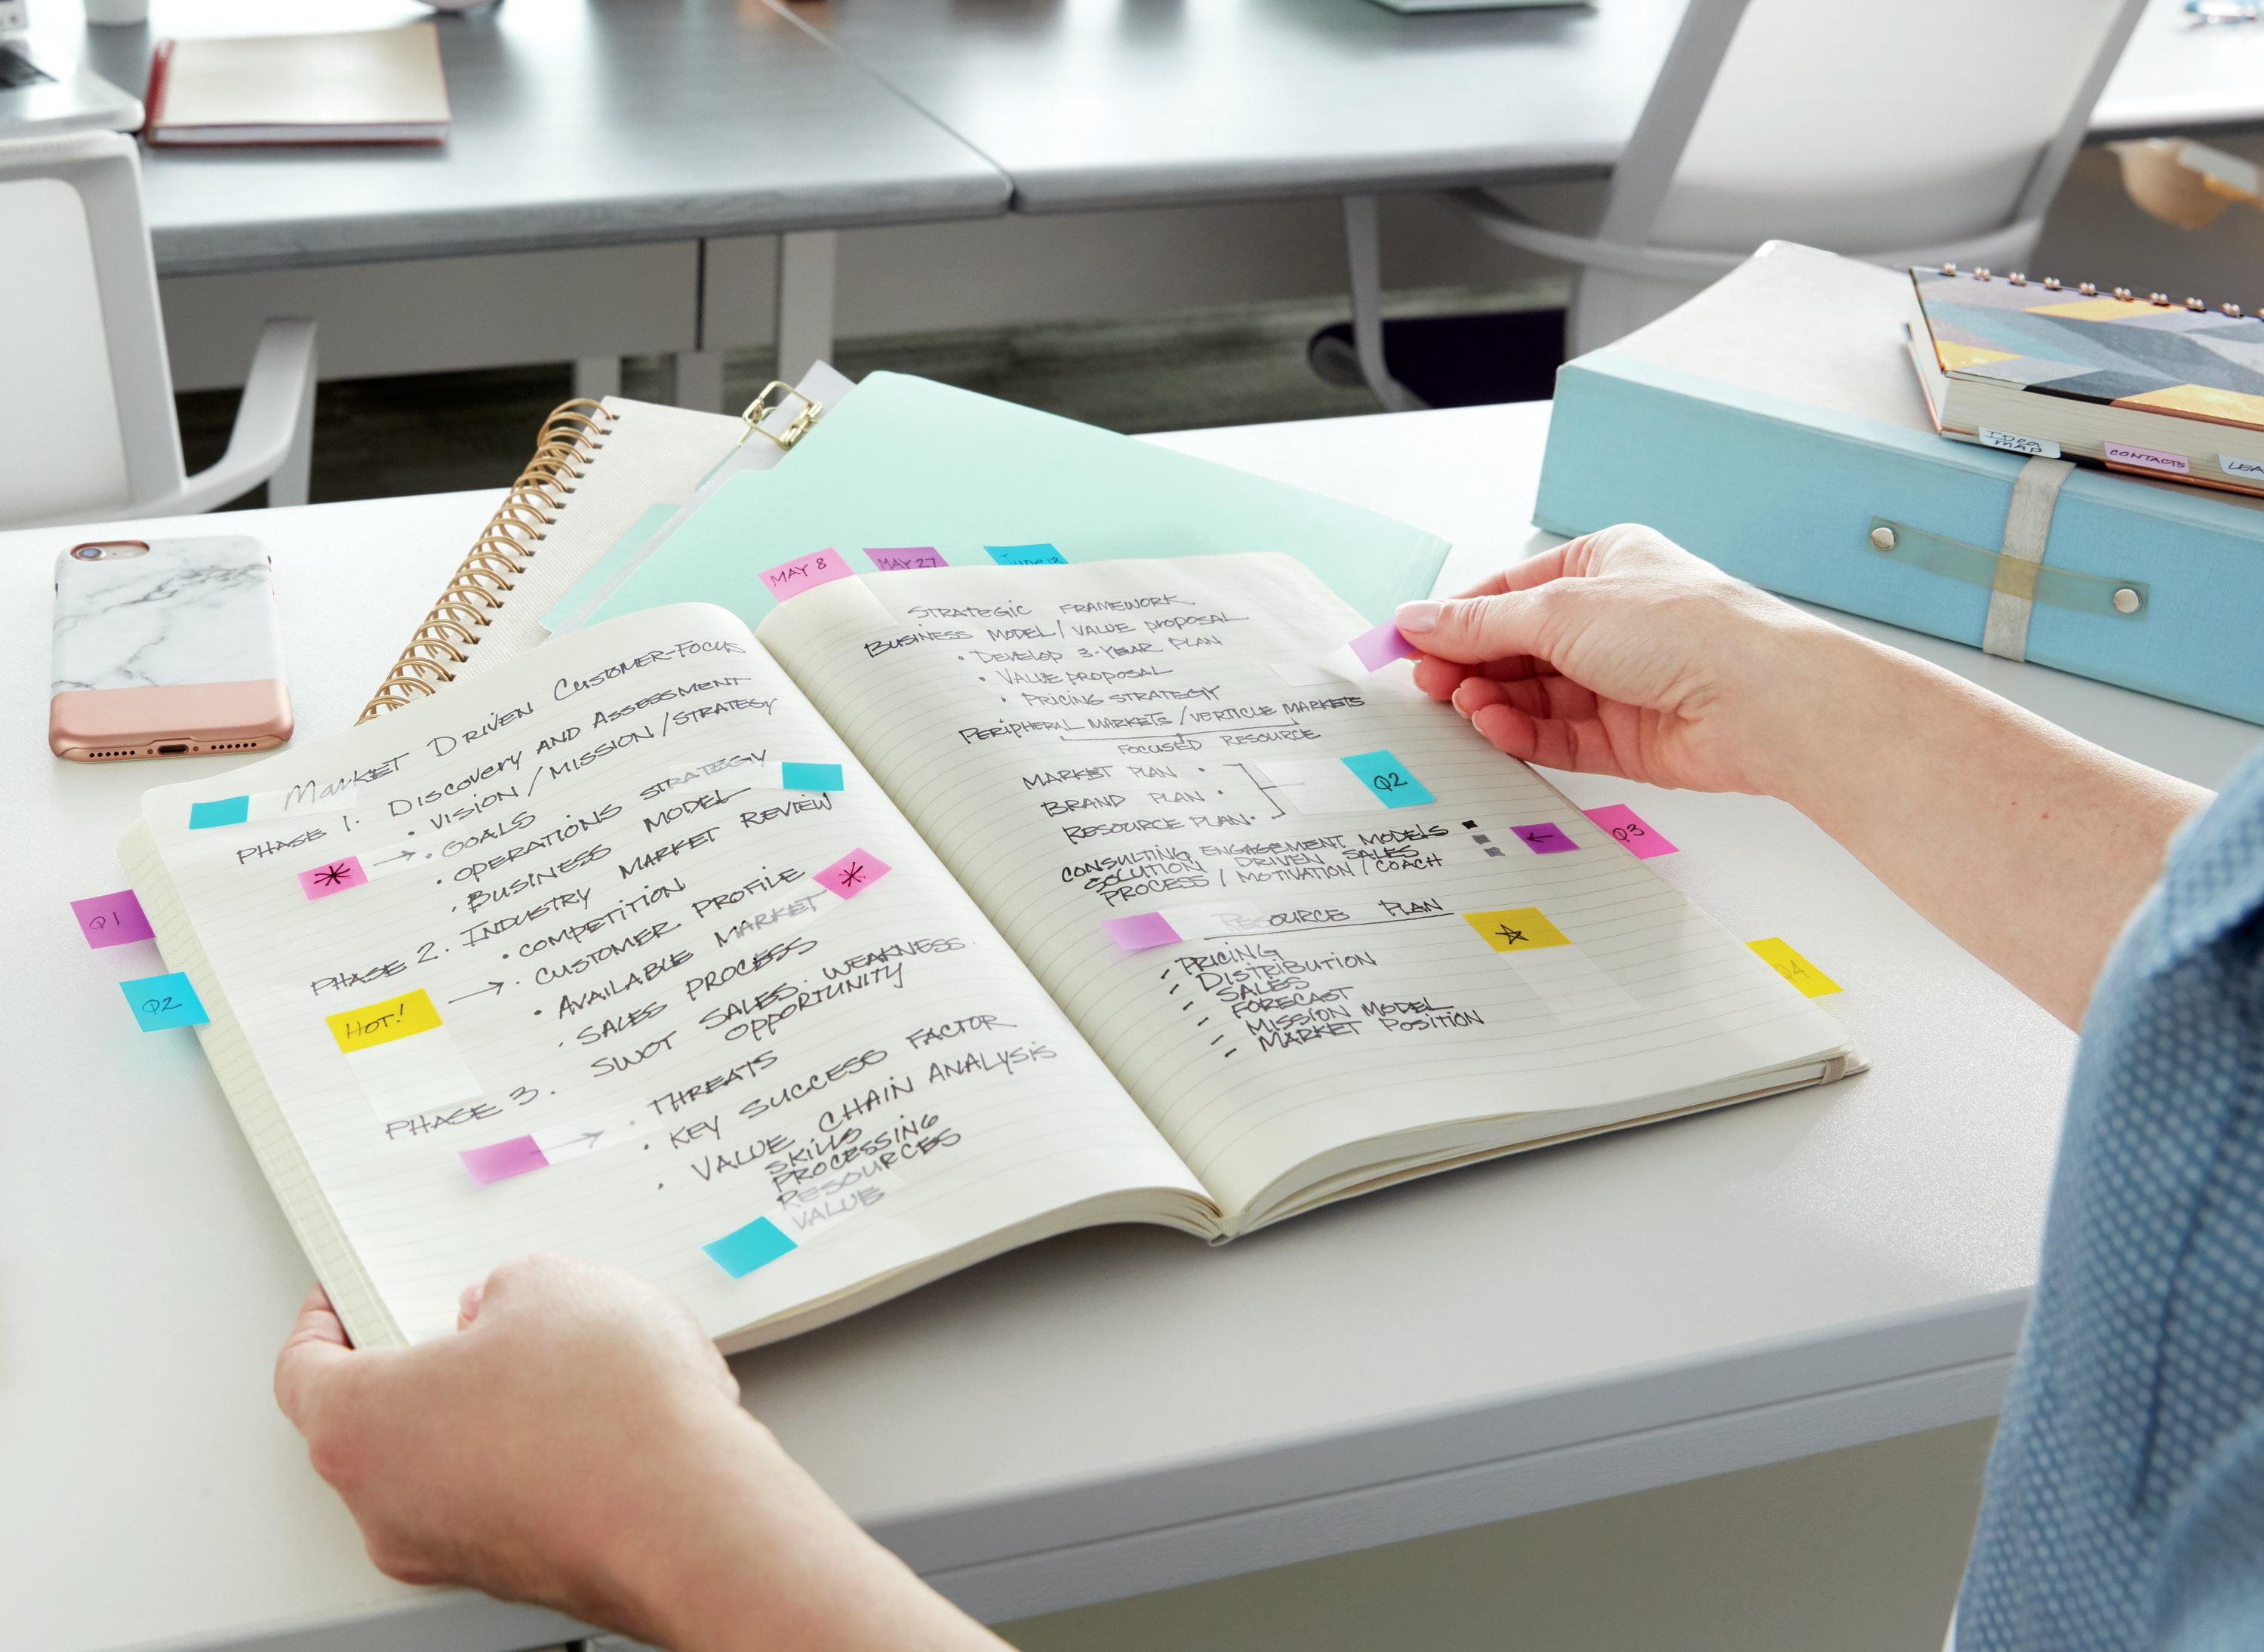 MAY 8
MAY 27
JUNE 12
Market Driven Customer-Focus
PHASE 1. Discovery AND Assessment
• VISION / MISSION / STRATEGY
* → • GOALS
• OPERATIONS STRATEGY
• BUSINESS MODEL
PHASE 2. INDUSTRY MARKET REVIEW
• COMPETITION
HOT! → • CUSTOMER PROFILE *
• AVAILABLE MARKET
• SALES PROCESS
PHASE 3. SWOT SALES. WEAKNESS.
OPPORTUNITY
→ • THREATS
• KEY SUCCESS FACTOR
• VALUE CHAIN ANALYSIS
SKILLS
PROCESSING
RESOURCES
VALUE
Q1
Q2
STRATEGIC FRAMEWORK
BUSINESS MODEL / VALUE PROPOSAL
• DEVELOP 3-YEAR PLAN
• VALUE PROPOSAL
• PRICING STRATEGY
PERIPHERAL MARKETS / VERTICLE MARKETS
FOCUSED RESOURCE
MARKET PLAN •
BRAND PLAN •
RESOURCE PLAN •
Q2
CONSULTING ENGAGEMENT MODELS
SOLUTION DRIVEN SALES ←
PROCESS / MOTIVATION / COACH
RESOURCE PLAN
- PRICING
- DISTRIBUTION
- SALES
- FORECAST
- MISSION MODEL
- MARKET POSITION
Q3
Q4
IDEA
MAP
CONTACTS